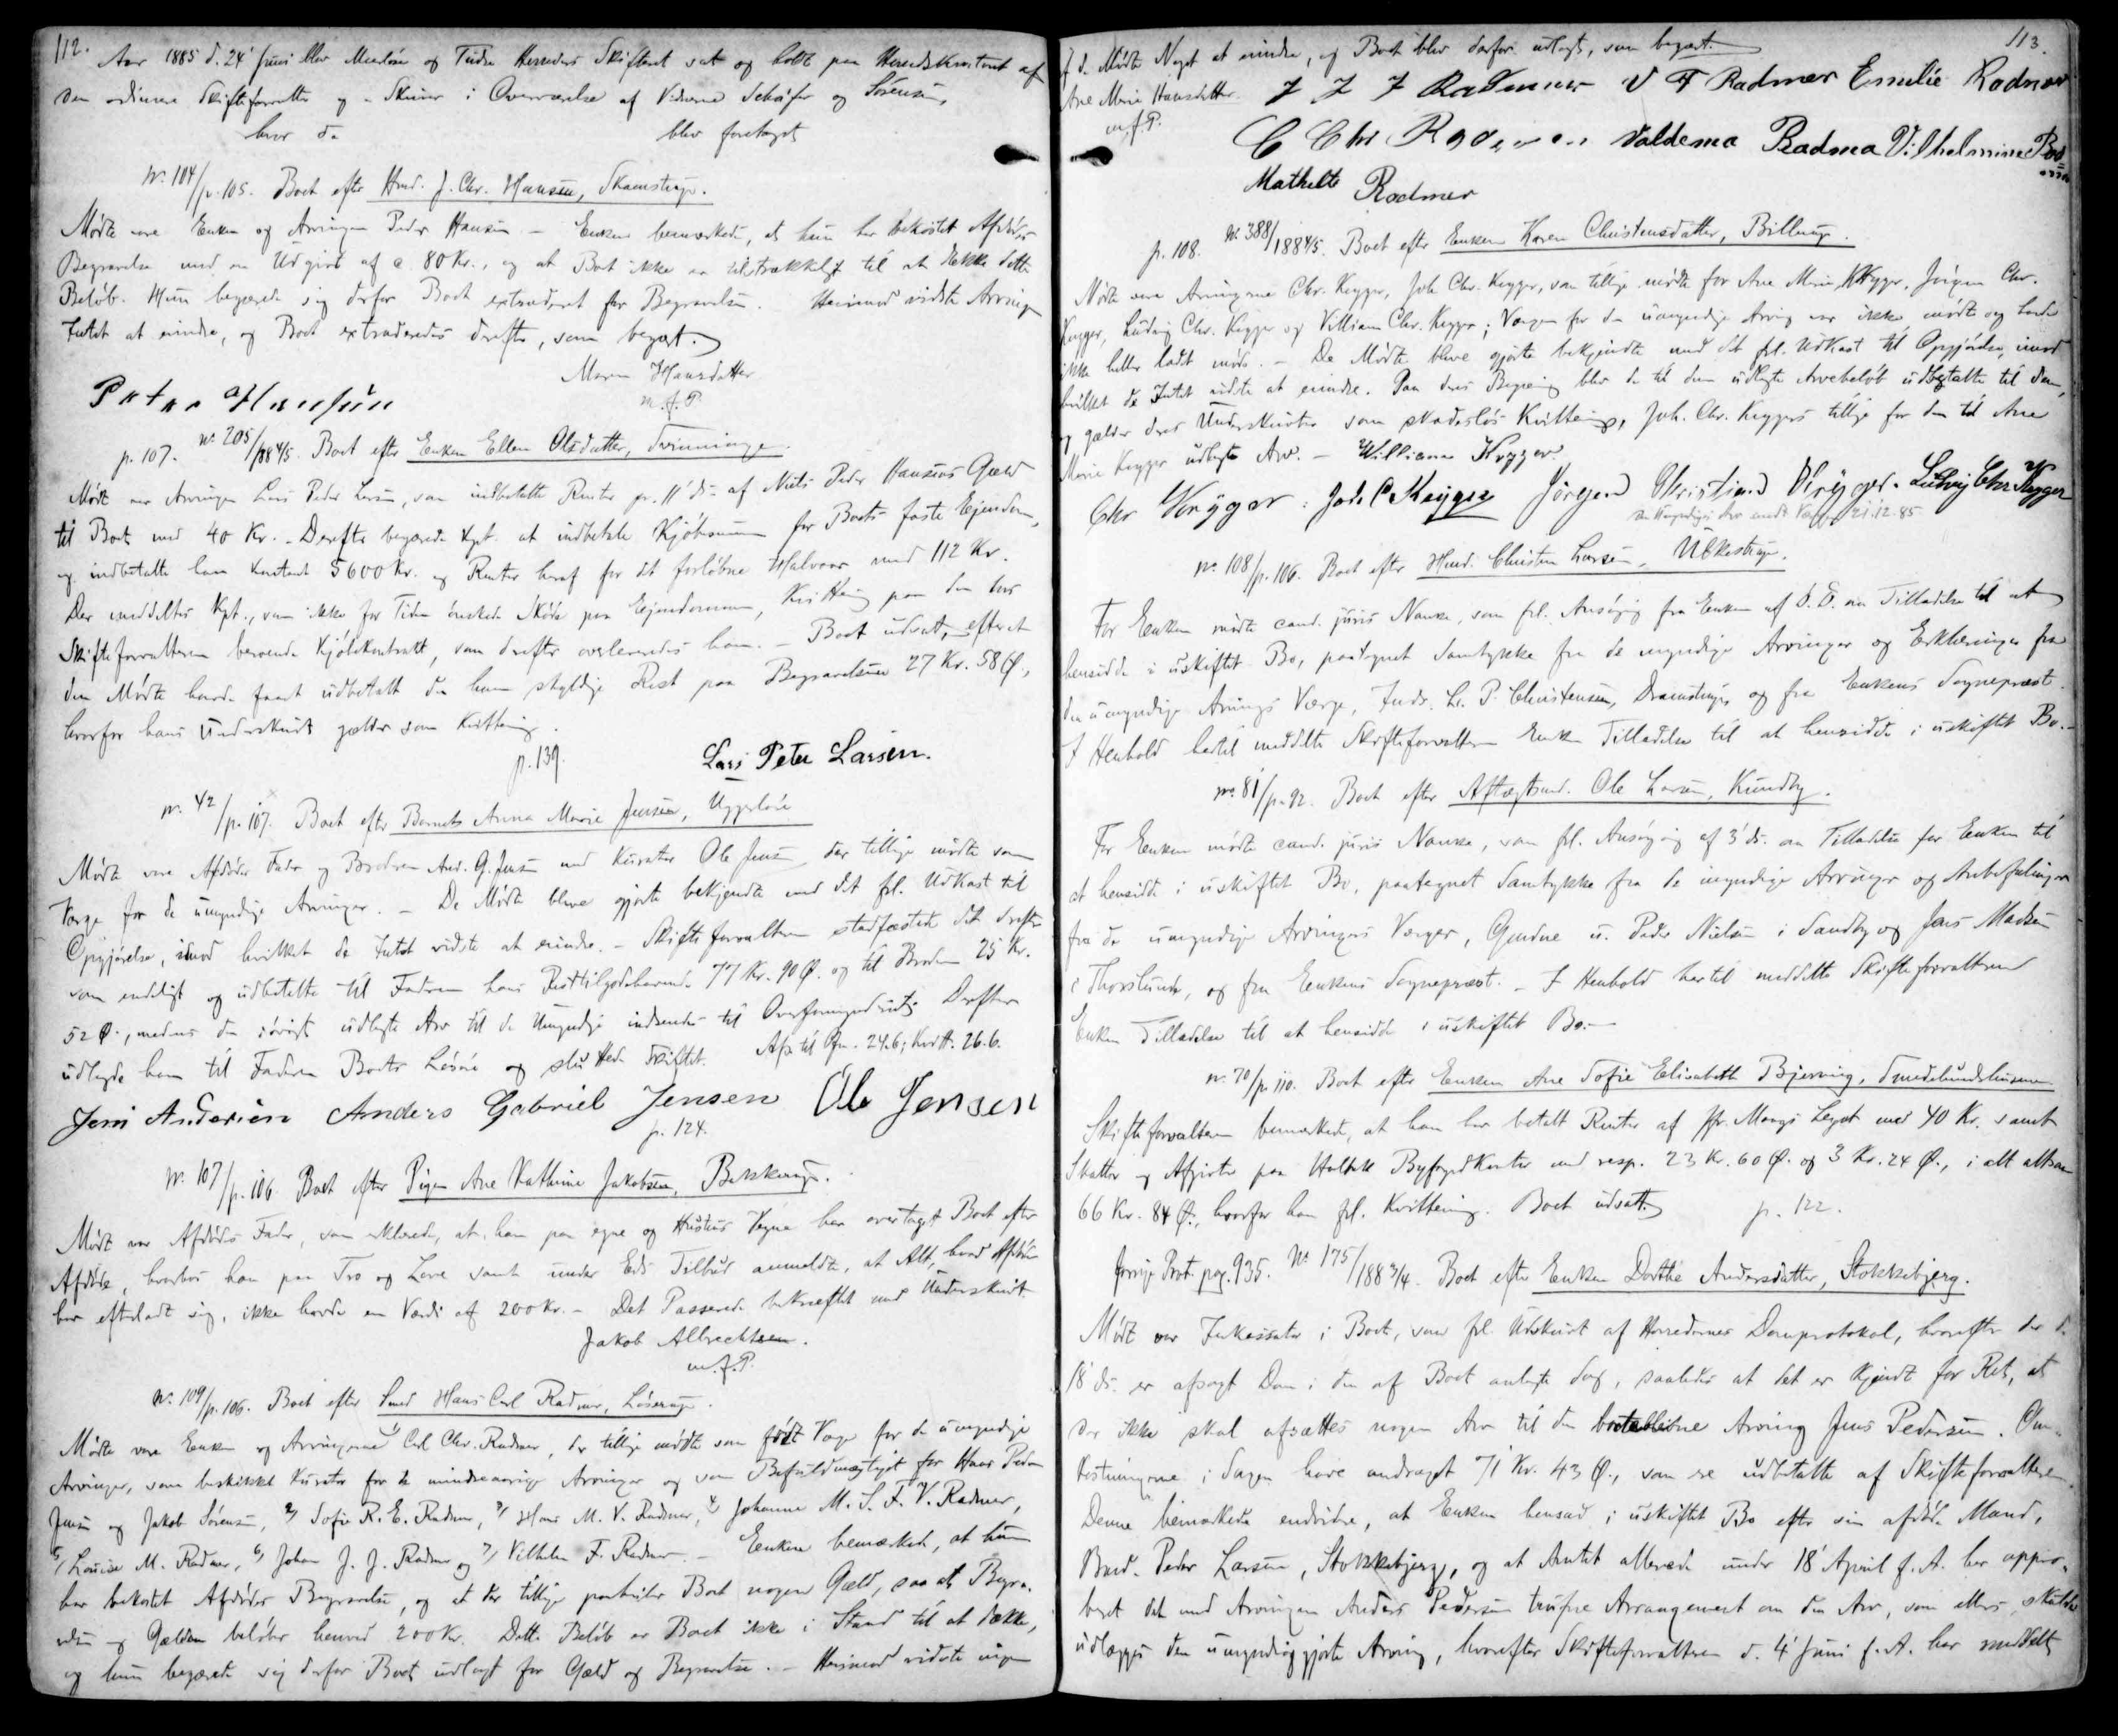 112.
Aar 1885 d. 24' Juni blev Merløse og Tudse Herreders Skifteret sat og holdt paa Herredskontoret af
den ordinære Skifteforvalter og -Skriver i Overværelse af Vidnerne Schäfer og Sørensen,
hvor da blev foretaget
No 104/p. 105. Boet efter Hmd. J. Chr. Hansen, Skamstrup.
Mødte vare Enken og Arvingen Peder Hansen. - Enken bemærkede, at hun har bekostet Afdødes
Begravelse med en Udgivt af c. 80 Kr., og at Boet ikke er tilstrækkeligt til at dække dette
Beløb. Hun begjærede sig derfor Boet extraderet for Begravelsen. Herimod vidste Arvingen
Intet at erindre, og Boet extraderedes derefter, som begært.
Maren Hansdatter
m. f. P.
Peter Hansen
p. 107. No 205/1884/5. Boet efter Enken Ellen Olsdatter, Svinninge.
Mødt var Arvingen Lars Peder Larsen, som indbetalte Renter pr. 11' ds. af Niels Peder Hansens Gæld
til Boet med 40 Kr. - Derefter begærede Kpt. at indbetale Kjøbesummen for Boets faste Ejendom,
og indbetalte han kontant 5600 Kr. og Renter heraf for det forløbne Halvaar med 112 Kr.
Der meddeltes Kpt., som ikke for Tiden ønskede Skøde paa Ejendommen, Kvittering paa den hos
Skifteforvalteren beroende Kjøbekontrakt, som derefter overleveredes ham. - Boet udsat, efterat
den Mødte havde faaet udbetalt den ham skyldige Rest paa Begravelsen 27 Kr. 58 Ø.,
hvorfor hans Underskrift gælder som Kvittering.
p. 139. Lars Peter Larsen.
No. 42/p. 107. Boet efter Barnet Anna Marie Jensen, Uggerløse
Mødte vare Afdødes Fader og Broderen And. G. Jensen med Kurator Ole Jensen, der tillige mødte som
Værge for de umyndige Arvinger. - De Mødte bleve gjorte bekjendte med det frl. Udkast til
Opgjørelse, imod hvilket de Intet vidste at erindre. - Skifteforvalteren stadfæstede det derefter
som endeligt og udbetalte til Faderen hans Resttilgodehavende 77 Kr. 90 Ø. og til Broderen 25 Kr.
52 Ø., medens den øvrigt udlagte Arv til de Umyndige indsendes til Overformynderiet. Derefter
udlagde han til Faderen Boets Løsøre og sluttede Skiftet. Afs. til Ofm. 24.6; Kvitt. 26.6.
Jens Andersen Anders Gabriel Jensen Ole Jensen
p. 124.
No. 107/p. 106 Boet efter Pigen Ane Kathrine Jakobsen, Bukkerup.
Mødt var Afdødes Fader, som erklærede, at han paa egne og Hustrus Vegne har overtaget Boet efter
Afdøde, hvorhos han paa Tro og Love samt under Eds Tilbud anmeldte, at Alt, hvad Afdøde
har efterladt sig, ikke havde en Værdi af 200 Kr. - Det Passerede bekræftet med Underskrift
Jakob Albrechtsen.
m. f. P.
No. 109/p. 106. Boet efter Smed Hans Carl Radmer, Løserup.
Mødte vare Enken og Arvingerne 1) Carl Chr. Radmer, der tillige mødte som født Værge for de umyndige
Arvinger, som beskikket Kurator for de mindreaarige Arvinger og som Befuldmægtiget for Hans Peder
Jensen og Jakob Sørensen, 2) Sofie R. E. Radmer, 3) Hans M. V. Radmer, 4) Johanne M. S. F. V. Radmer,
5) Louise M. Radmer, 6) Johan J. J. Radmer og 7) Vilhelm F. Radmer. - Enken bemærkede, at hun
har bekostet Afdødes Begravelse, og at der tillige paahviler Boet nogen Gæld, saa at Begra-
velsen og Gælden beløber henved 200 Kr. Dette Beløb er Boet ikke i Stand til at dække,
og hun begærede sig derfor Boet udlagt for Gæld og Begravelse. - Herimod vidste ingen
113.
af de Mødte Noget at erindre, og Boet blev derfor udlagt, som begært.
Ane Marie Hansdatter
m. f. P.
J J J Radmer V F Radmer Emilie Radmer
C Chr Radmer Valdema Radma Vilhelmine
Mathilte Radmer
p. 108. No 388/1884/5. Boet efter Enken Karen Christensdatter, Billerup.
Mødte vare Arvingerne Chr. Krygger, Joh. Chr. Krygger, som tillige mødte for Ane Marie Krygger, Jørgen Chr.
Krygger, Ludvig Chr. Krygger og Villiam Chr. Krygger; Værgen for den umyndige Arving var ikke mødt og havde
ikke heller ladet møde. - De Mødte bleve gjorte bekjendte med det frl. Udkast til Opgjørelse, imod
hvilket de Intet vidste at erindre. Paa deres Begæring blev de til dem udlagte Arvebeløb udbetalte til dem,
og gælder deres Underskrifter som skadesløs Kvittering, Joh. Chr. Kryggers tillige for den til Ane
Marie Krygger udlagte Arv. - William Krygger.
Chr Krygger. Joh C Krygger Jørgen Christian Krygger. Ludvig Chr Krygger
Den Umyndiges Arv 21.12.85
No. 108/p. 106. Boet efter Hmd. Christen Larsen, Ubbestrup.
For Enken mødte cand. juris Nanke, som frl. Ansøgning fra Enken af D. D. om Tilladelse til at
hensidde i uskiftet Bo, paategnet Samtykke fra de myndige Arvinger og Erklæringer fra
den umyndige Arvings Værge, Inds. L. P. Christensen, Dramstrup, og fra Enkens Sognepræst.
I Henhold hertil meddelte Skifteforvalteren Enken Tilladelse til at hensidde i uskiftet Bo.-
No. 81/p. 92. Boet efter Aftægtsmd. Ole Larsen, Kundby.
For Enken mødte cand. juris Nanke, som frl. Ansøgning af 3' ds. om Tilladelse for Enken til
at hensidde i uskiftet Bo, paategnet Samtykke fra de myndige Arvinger og Anbefalinger
fra de umyndige Arvingers Værger, Gmdne Peder Nielsen i Sandby og Jens Madsen
i Thorslunde, og fra Enkens Sognepræst. - I Henhold hertil meddelte Skifteforvalteren
Enken Tilladelse til at hensidde i uskiftet Bo.-
No. 70/p. 110. Boet efter Enken Ane Sofie Elisabeth Bjerring, Smedelundshusene
Skifteforvalteren bemærkede, at han har betalt Renter af Legat med 40 Kr. samt
Skatter og Afgivter paa Holbæk Byfogedkontor med resp. 23 Kr. 60 Ø. og 3 Kr. 24 Ø., i alt altsaa
66 Kr. 84 Ø., hvorfor han frl. Kvittering. Boet udsat. p. 122.
forrige Prot. pag. 935. No 175/1883/4. Boet efter Enken Dorthe Andersdatter, Stokkebjerg.
Mødt var Inkassator i Boet, som frl. Udskrift af Herredernes Domprotokol, hvorefter der d.
18' ds. er afsagt Dom i den af Boet anlagte Sag, saaledes at det er kjendt for Ret, at
der ikke skal afsættes nogen Arv til den borteblevne Arving Jens Pedersen. Om-
kostningerne i Sagen have andraget 71 Kr. 43 Ø., som ere udbetalte af Skifteforvalteren.
Denne bemærkede endvidere, at Enken hensad i uskiftet Bo efter sin afdøde Mand,
Bmd. Peder Larsen, Stokkebjerg, og at Amtet allerede under 18' April f. A. har appro-
beret det med Arvingen Anders Pedersen trufne Arrangement om den Arv, som ellers skulde
udlægges den umyndiggjorte Arving, hvorefter Skifteforvalteren d. 4' Juni f. A. har meddelt